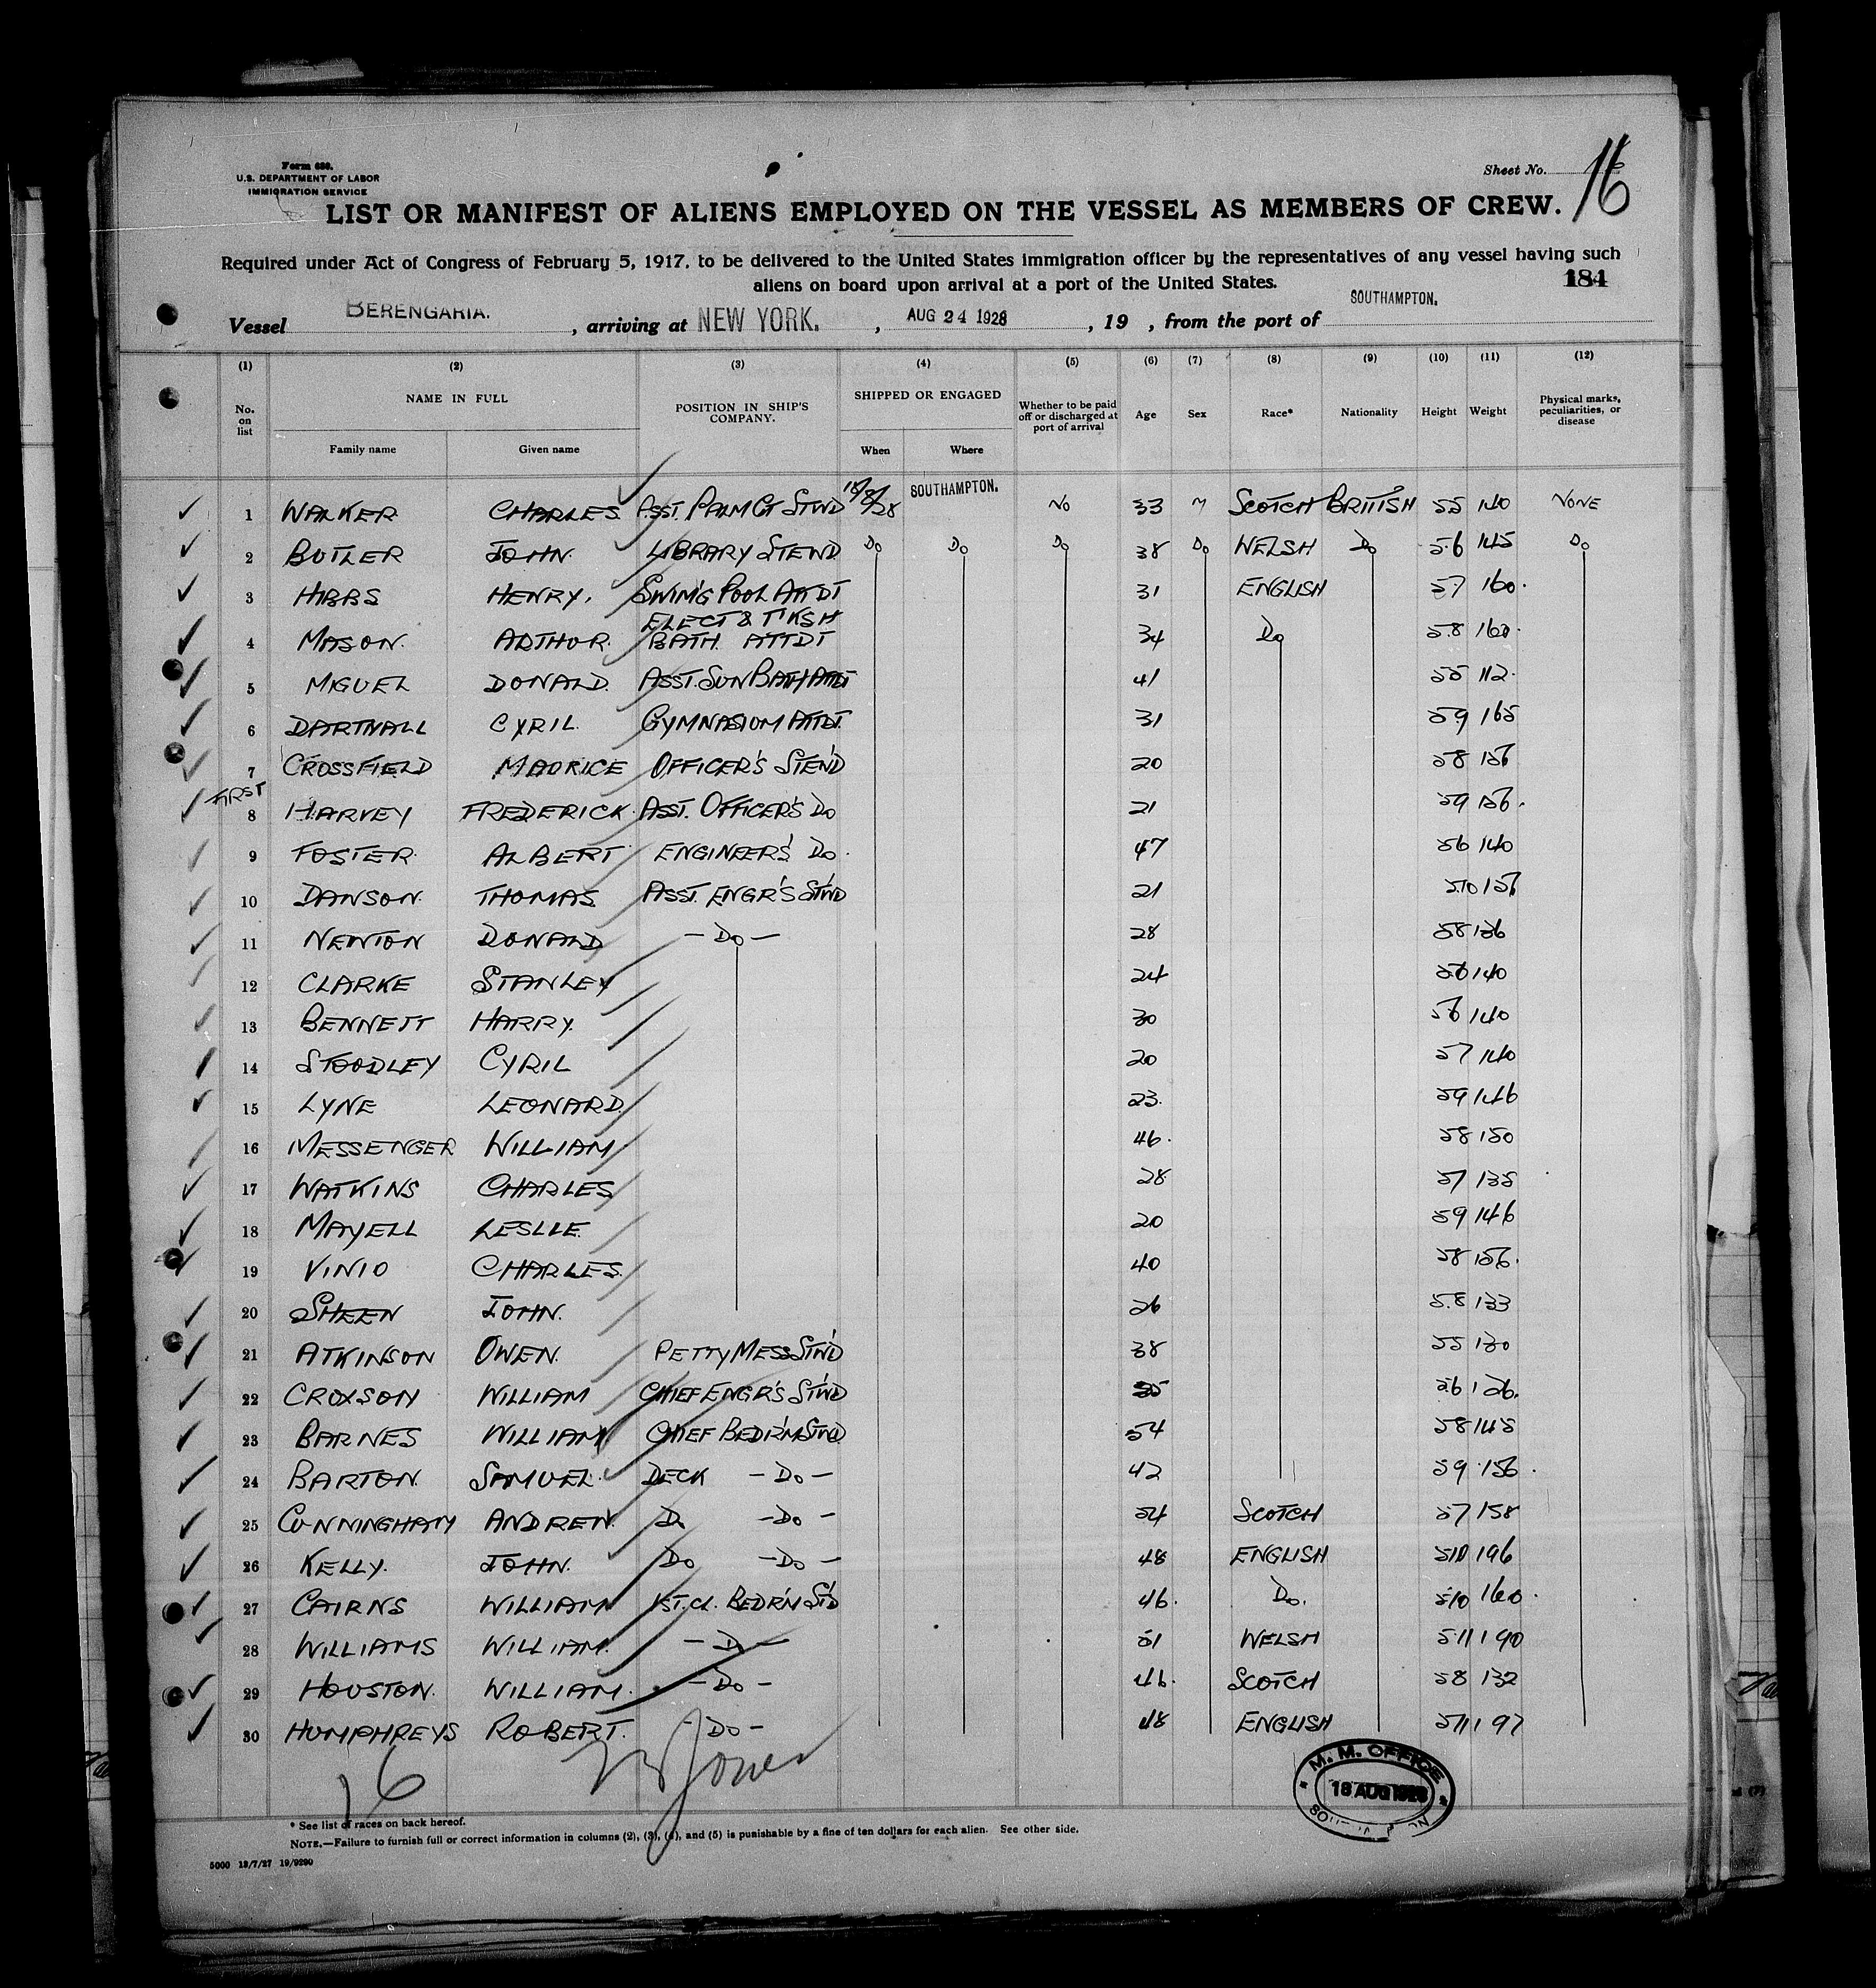 Form 689.
U.S. DEPARTMENT OF LABOR
IMMIGRATION SERVICE
Sheet No. 16
LIST OR MANIFEST OF ALIENS EMPLOYED ON THE VESSEL AS MEMBERS OF CREW.
Required under Act of Congress of February 5, 1917, to be delivered to the United States immigration officer by the representatives of any vessel having such
aliens on board upon arrival at a port of the United States.
184
Vessel BERENGARIA. , arriving at NEW YORK. , AUG 24 1928 , 19 , from the port of SOUTHAMPTON.
(1) (2) (3) (4) (5) (6) (7) (8) (9) (10) (11) (12)
No. on list NAME IN FULL POSITION IN SHIP'S COMPANY. SHIPPED OR ENGAGED Whether to be paid off or discharged at port of arrival Age Sex Race* Nationality Height Weight Physical marks, peculiarities, or disease
Family name Given name When Where
1 WALKER CHARLES ASST. PALM CT STWD 18/8/28 SOUTHAMPTON. NO 33 M SCOTCH BRITISH 55 140 NONE
2 BUTLER JOHN. LIBRARY STEWD Do Do Do 38 Do WELSH Do 5.6 145 Do
3 HIBBS HENRY. SWIM'G POOL ATTDT 31 ENGLISH 57 160.
4 MASON. ARTHUR. ELECT & T'KSH BATH ATTDT 34 Do 5.8 160.
5 MIGUEL DONALD. ASST. SUN BATH ATTDT 41 55 112.
6 DARTNALL CYRIL. GYMNASIUM ATTDT. 31 59 165
7 CROSSFIELD MAURICE OFFICER'S STEW'D 20 58 156
FIRST
8 HARVEY FREDERICK. ASST. OFFICER'S Do 21 59 156.
9 FOSTER. ALBERT ENGINEER'S Do. 47 56 140
10 DANSON. THOMAS. ASST. ENGR'S STWD 21 5.10 156
11 NEWTON DONALD — Do — 28 58 136
12 CLARKE STANLEY 24 56 140
13 BENNETT HARRY. 30 56 140
14 STOODLEY CYRIL 20 57 140
15 LYNE LEONARD. 23. 59 146
16 MESSENGER WILLIAM. 46. 58 150
17 WATKINS CHARLES 28 57 135
18 MAYELL LESLIE. 20 59 146
19 VINIO CHARLES. 40 58 156.
20 SHEEN JOHN. 26 5.8 133
21 ATKINSON OWEN. PETTY MESS STWD 38 55 130
22 CROXSON WILLIAM CHIEF ENGR'S STWD 35 5.6 126.
23 BARNES WILLIAM CHIEF BEDR'M STWD 54 58 145
24 BARTON. SAMUEL. DECK — Do — 42 59 156.
25 CUNNINGHAM ANDREW. Do — Do — 54 SCOTCH 57 158
26 KELLY. JOHN. Do — Do — 48 ENGLISH 510 196
27 CAIRNS WILLIAM 1ST. CL. BEDR'M ST'D 46. Do. 510 160.
28 WILLIAMS WILLIAM. — Do — 51 WELSH 5.11 190
29 HOUSTON. WILLIAM. — Do — 46. SCOTCH 58 132
30 HUMPHREYS ROBERT. — Do — 48 ENGLISH 511 197
16 Jones
M. M. OFFICE
18 AUG 1928
* See list of races on back hereof.
NOTE.—Failure to furnish full or correct information in columns (2), (3), (4), and (5) is punishable by a fine of ten dollars for each alien. See other side.
5000 13/7/27 19/9290